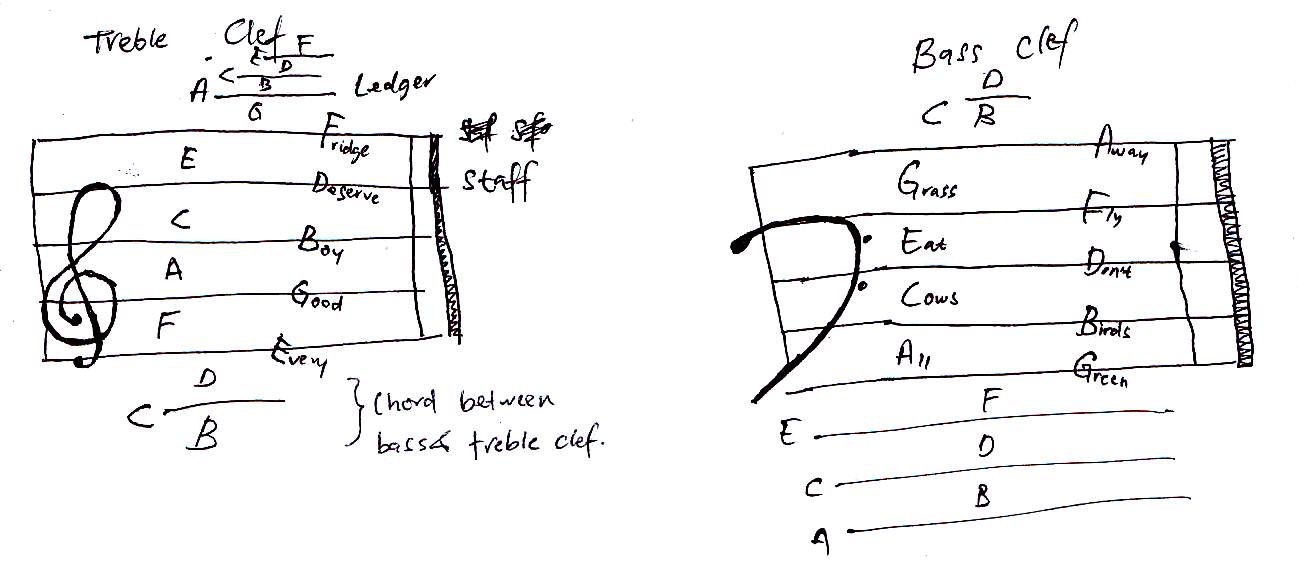 Treble Clef
E F
D
C
B
A Ledger
G
Fridge
E
Deserve
staff
C
Boy
A
Good
F
Every
D
C
B
Chord between
bass & treble clef.
Bass Clef
D
C
B
Away
Grass
Fly
Eat
Dont
Cows
Birds
All
Green
F
E
D
C
B
A